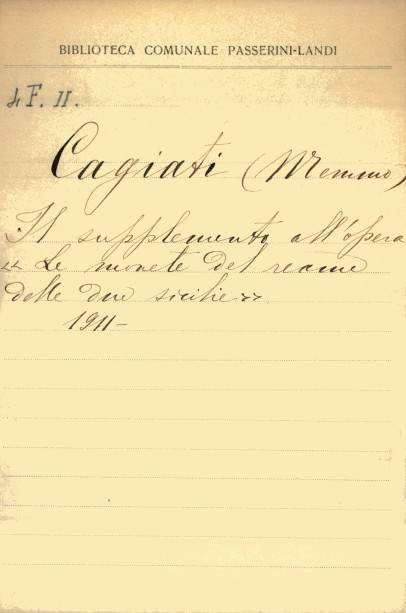 BIBLIOTECA COMUNALE PASSERINI-LANDI
4 F. II.
Cagiati (Memmo)
Il supplemento all'opera
« Le monete del reame
delle due sicilie »
1911-